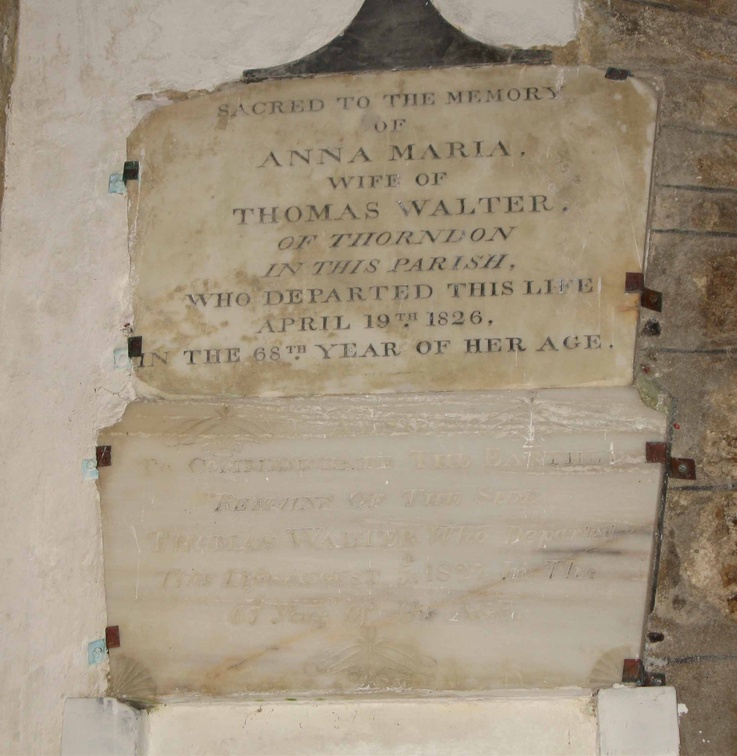 SACRED TO THE MEMORY
OF
ANNA MARIA,
WIFE OF
THOMAS WALTER,
OF THORNDON
IN THIS PARISH,
WHO DEPARTED THIS LIFE
APRIL 19TH. 1826,
IN THE 68TH. YEAR OF HER AGE.
To Commemorate The Earthly
Remains Of The Said
THOMAS WALTER Who Departed
This Life August In The
67 Year Of His Age